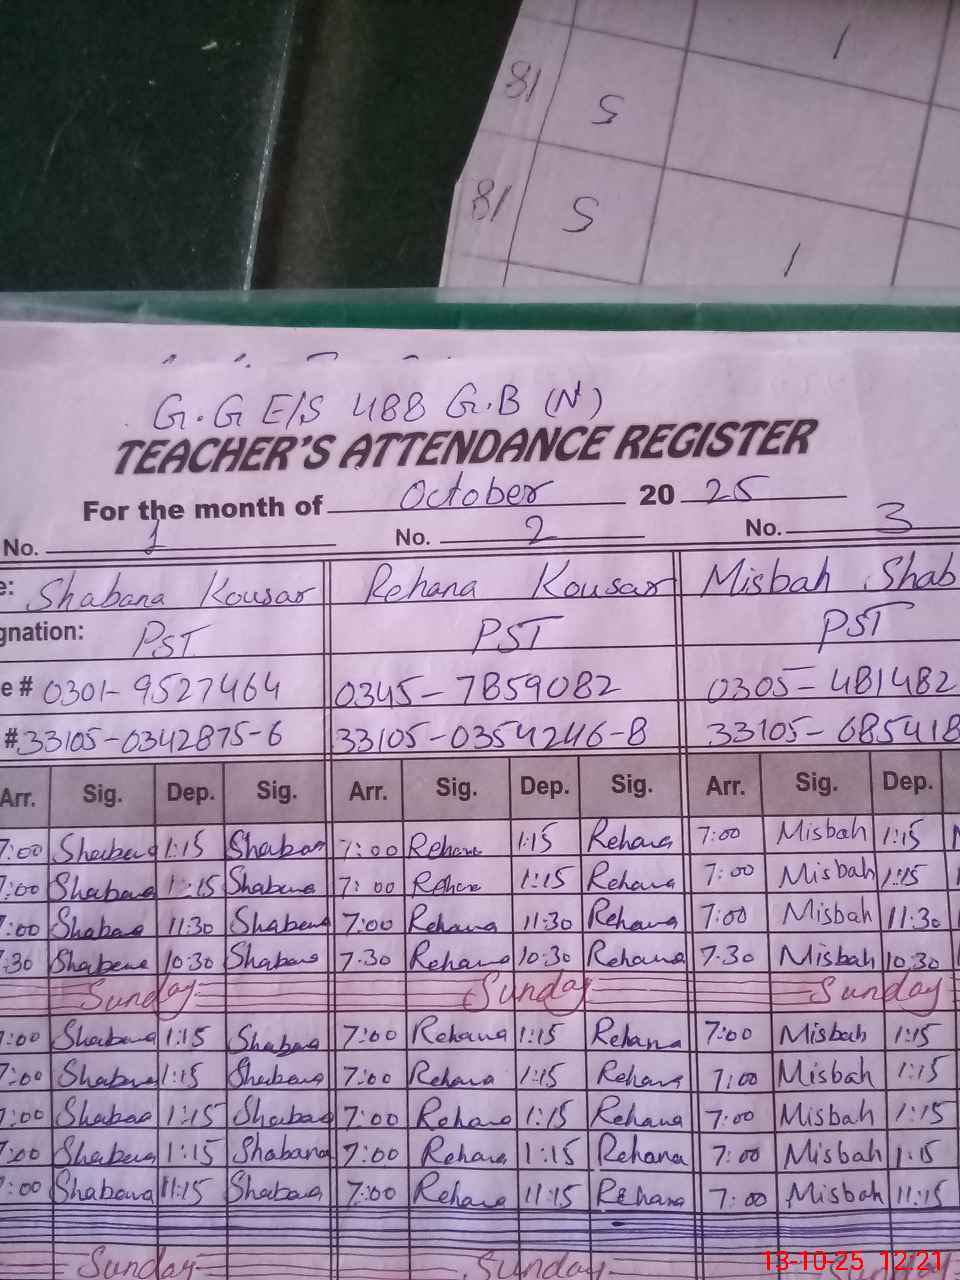 18 5 1
18 5 1
G.G E/S 488 G.B (N)
TEACHER'S ATTENDANCE REGISTER
For the month of October 20 25
No. 1 No. 2 No. 3
e: Shabana Kousar Rehana Kousar Misbah Shab
gnation: PST PST PST
e # 0301-9527464 0345-7859082 0305-481482
# 33105-0342875-6 33105-0354246-8 33105-685418
Arr. Sig. Dep. Sig. Arr. Sig. Dep. Sig. Arr. Sig. Dep.
7:00 Shabana 1:15 Shabana 7:00 Rehana 1:15 Rehana 7:00 Misbah 1:15
7:00 Shabana 1:15 Shabana 7:00 Rehana 1:15 Rehana 7:00 Misbah 1:15
7:00 Shabana 11:30 Shabana 7:00 Rehana 11:30 Rehana 7:00 Misbah 11:30
7.30 Shabana 10:30 Shabana 7.30 Rehana 10:30 Rehana 7.30 Misbah 10:30
Sunday Sunday Sunday
7:00 Shabana 1:15 Shabana 7:00 Rehana 1:15 Rehana 7:00 Misbah 1:15
7:00 Shabana 1:15 Shabana 7:00 Rehana 1:15 Rehana 7:00 Misbah 1:15
7:00 Shabana 1:15 Shabana 7:00 Rehana 1:15 Rehana 7:00 Misbah 1:15
7:00 Shabana 1:15 Shabana 7:00 Rehana 1:15 Rehana 7:00 Misbah 1:15
7:00 Shabana 11:15 Shabana 7:00 Rehana 11:15 Rehana 7:00 Misbah 11:15
Sunday Sunday
13-10-25 12:21